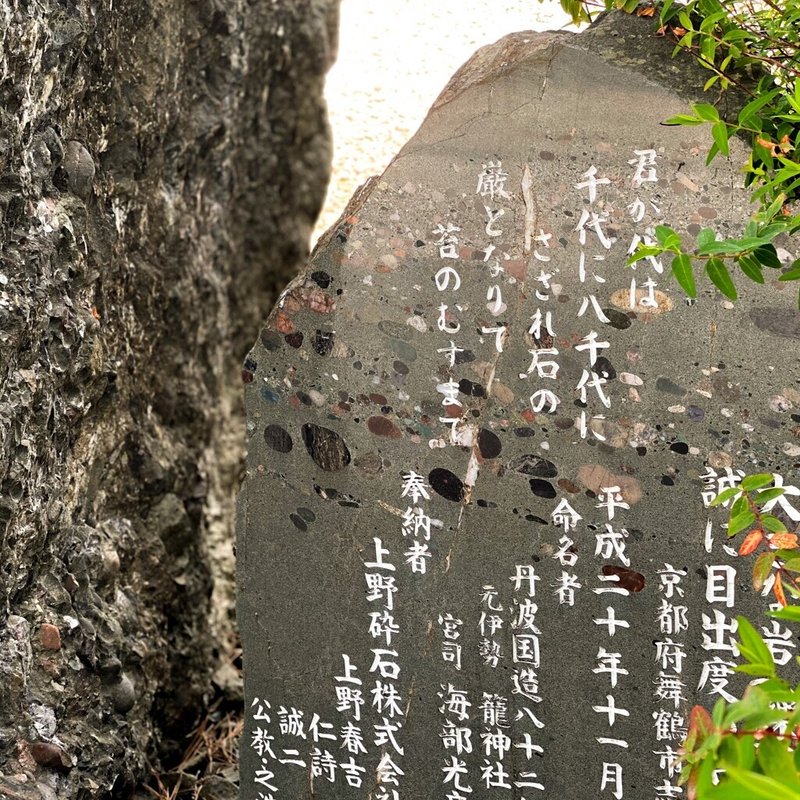 君が代は
千代に八千代に
さざれ石の
巌となりて
苔のむすまで
誠に目出度
京都府舞鶴市
平成二十年十一月
命名者
丹波国造八十二
元伊勢 籠神社
宮司 海部光
奉納者
上野砕石株式会社
上野春吉
仁詩
誠二
公教